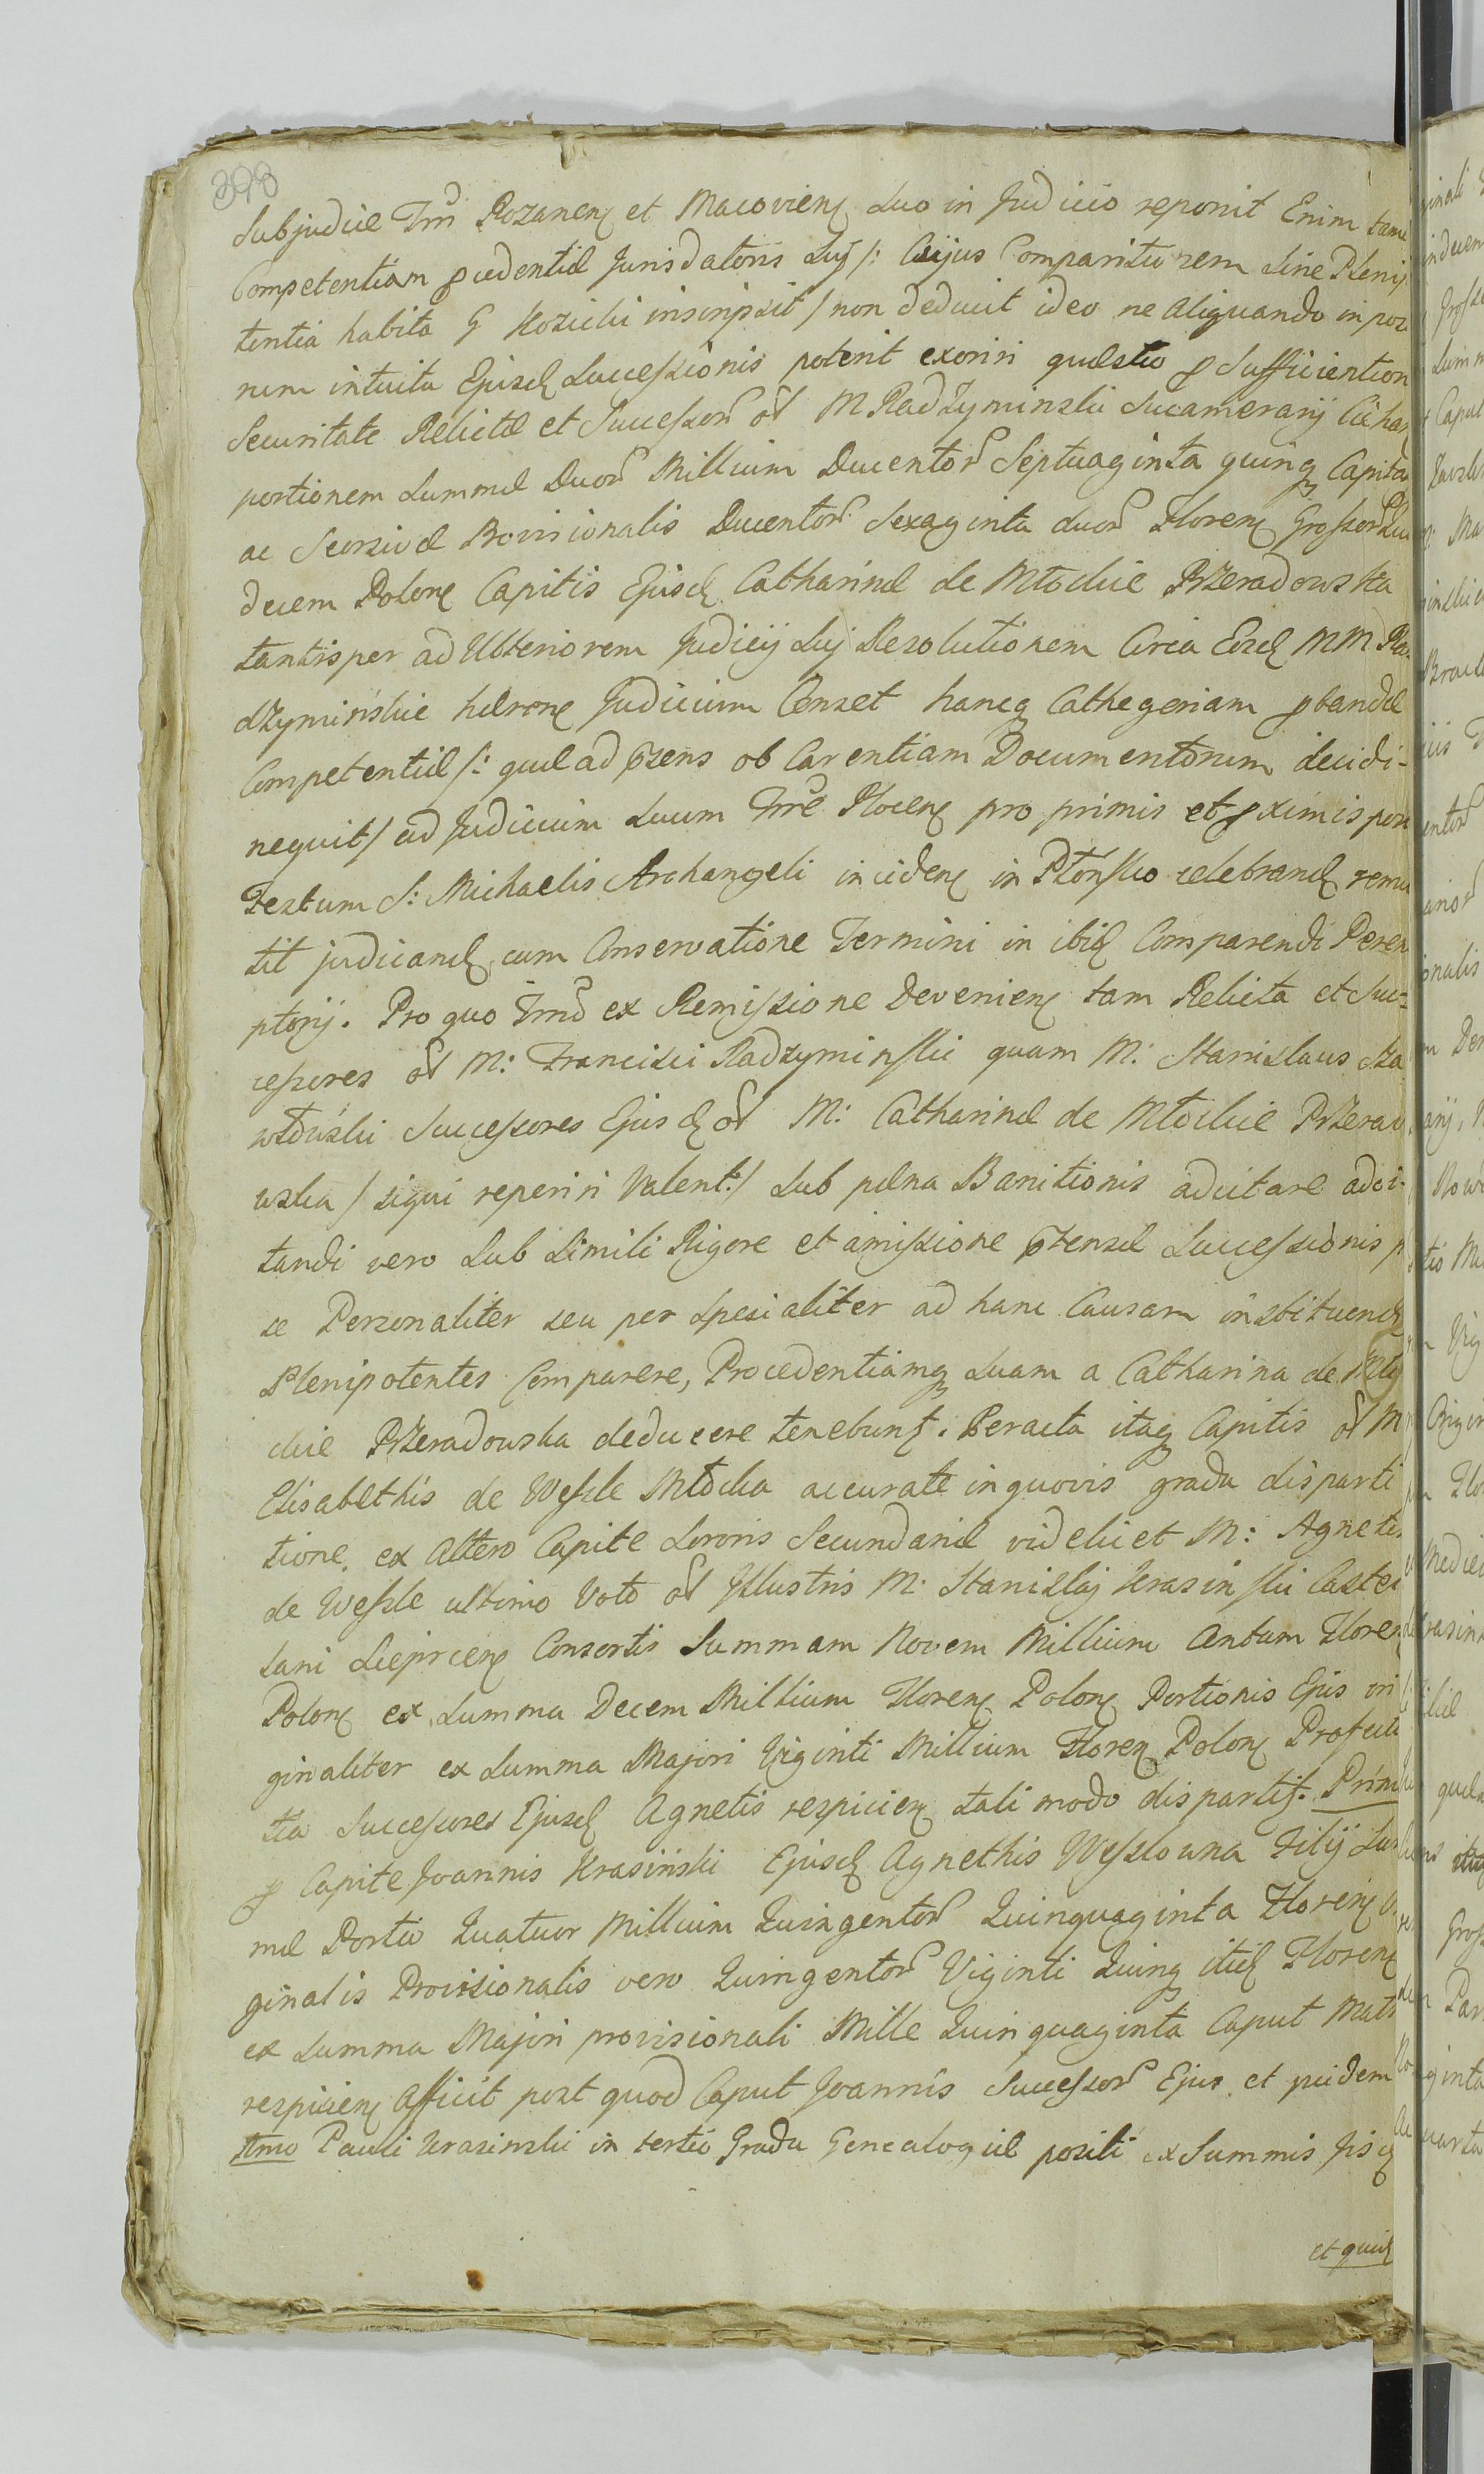 398
Subjudice Trri Rozanen et Macovien Suo in Judicio reponit Enim tame
Competentiam pcedentiæ Jurisdatoris Suj /: Cuijus Compariturem Sine Pleni
tentia habita G Kozicki inscripsit / non deducit ideo ne aliquando in pos
rum intuitu Ejusd Successionis poterit exoriri quæstio p Sufficiention
Securitate Relictæ et Successor ol M Radzyminski Sucamerarij Cieha
portionem Summæ Duor Millium Ducentor Septuaginta quinq Capita
ac Seorsivæ Provisionalis Ducentor Sexaginta duor Floren Grossor
decem Polon Capitis Ejusd Catharinæ de Młockie Przeradowska
tantisper ad Ulteriorem Judicij Suj Resolutionem Circa Eosd MM Ra
dzyminskie hæron Judicium Censet hancq Cathegoriam pbandæ
Competentiæ /: quæ ad pzens ob Carentiam Documentorum decidi-
nequit / ad Judicium Suum Trræ Plocen pro primis et pximis post
Festum S: Michaelis Archangeli inciden in Płonsko celebrand remi
tit judicand cum Conservatione Termini in ibid Comparendi Perem
ptorij. Pro quo Trno ex Remissione Devenien tam Relicta et Suc-
cessores ol M: Francisci Radzyminski quam M: Stanislaus Sza
włowski Successores Ejusd ol M: Catharinæ de Młockie Przerado
wska / siqui reperiri Valent:/ Sub pæna Banitionis adcitare adci-
tandi vero Sub Simili Rigore et amissione ptensæ Successionis p
se Personaliter seu per Specialiter ad hanc Causam instituend
Plenipotentes Comparere, Procedentiamq Suam a Catharina de Mło
ckie Przeradowska deducere tenebunt. Peracta itaq Capitis ol M
Elisabethis de Wessle Młocka accurate in quovis gradu disparti
tione, ex Altero Capite Sororis Secundariæ videlicet M: Agnetis
de Wessle ultimo Voto ol Jllustris M. Stanislaj Krasinski Castel
lani Sieprcen Consortis Summam Novem Millium Centum Floren
Polon ex Summa Decem Millium Floren Polon Portionis Ejus ori
ginaliter ex Summa Majori Viginti Millium Floren Polon
tia Successores Ejusd Agnetis respicien tali modo dispartit. Primo
p Capite Joannis Krasiński Ejusd Agnethis Wesslowna Filij Sum
mæ Portio Quatuor Millium Quingentor Quinquaginta Floren Ori
ginalis Provisionalis vero Quingentor Viginti Quinq itid Floren
ex Summa Majori provisionali Mille Quinquaginta Caput Matris
respicien Afficit post quod Caput Joannis Successor Ejus et quidem
1mo Pauli Krasinski in tertio Gradu Genealogiæ positi ex Summis Jisd
et quid